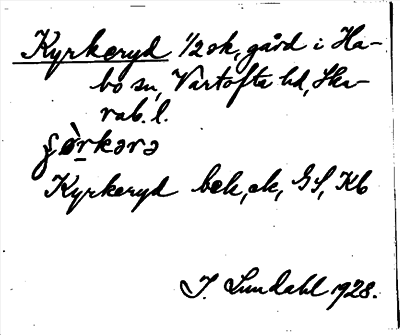 Kyrkeryd 1/2 ok, gård i Ha-
bo sn, Vartofta hd, Ska-
rab. l.
Kyrkeryd bek, ek, GS, Kb
I. Lundahl 1928.